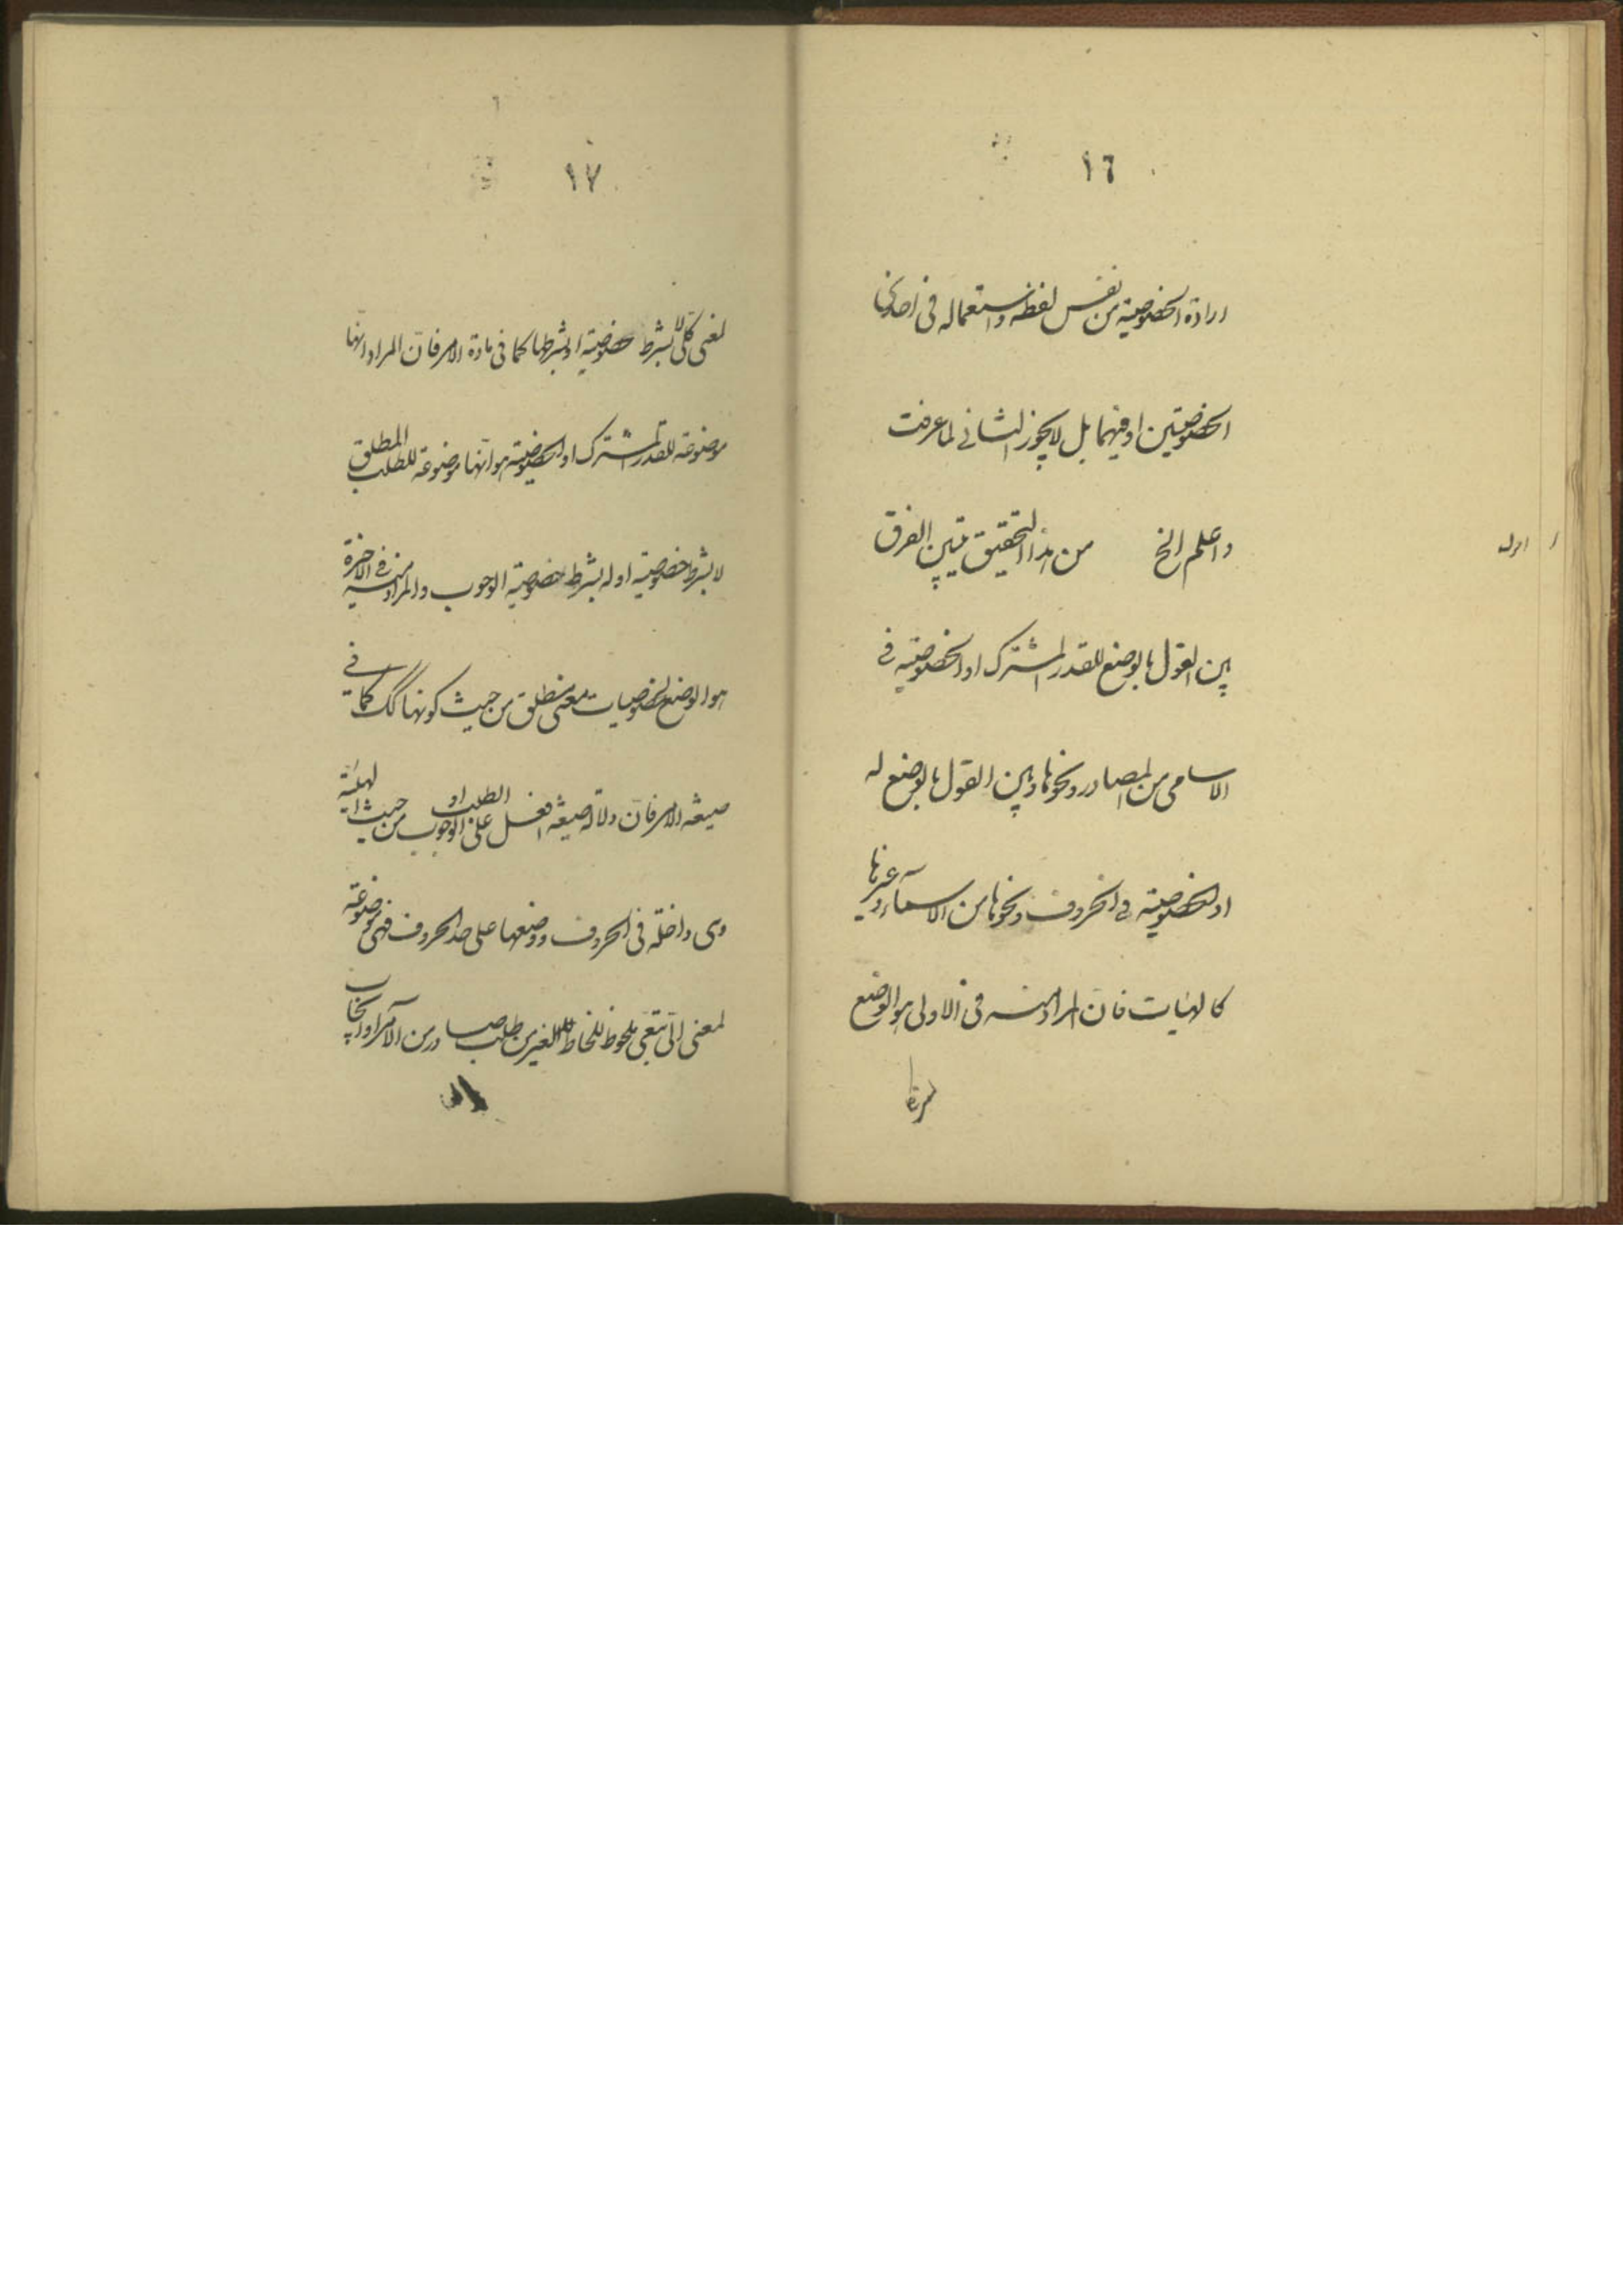 ١٦
ارادة الخصوصية من نفس لفظه واستعماله فى احدى
الخصوصيتين او فيهما بل لا يجوز الثانى لما عرفت
واعلم الخ من هذا التحقيق يتبين الفرق
بين القول بالوضع للقدر المشترك او الخصوصية فى
الاسامى من المصادر ونحوها وبين القول بالوضع له
او الخصوصية فى الحروف ونحوها من الاسماء وغيرها
كالهيات فان المراد منه فى الاولى هو الوضع
١٧
لمعنى كلى لا بشرط خصوصية او بشرطها كما فى مادة الامر فان المراد انها
موضوعة للقدر المشترك او الخصوصية هو انها موضوعة للطلب المطلق
لا بشرط خصوصية او له بشرط خصوصية الوجوب والمراد منه فى الاخيرة
هو الوضع لخصوصيات معنى مطلق من حيث كونها كك كما فى
صيغة الامر فان دلالة صيغة افعل على الطلب او الوجوب من حيث الهيئة
وهى داخلة فى الحروف ووضعها على حد الحروف فهى موضوعة
لمعنى الى ملحوظ للغير من طلب صادر من الآمر او ايجاب